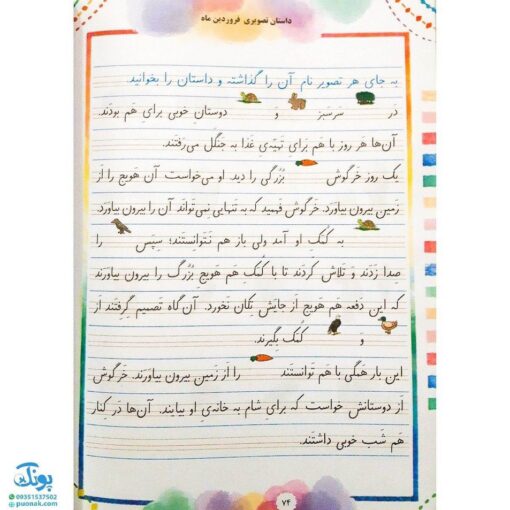 داستان تصویری فروردین ماه
به جای هر تصویر نام آن را گذاشته و داستان را بخوانید.
در سرسبز و دوستانِ خوبی برایِ هَم بودند.
آن‌ها هر روز با هَم بَرای تَهیّه‌یِ غَذا به جَنگل می‌رَفتند.
یک روز خَرگوش بُزُرگی را دید. او می‌خواست آن هَویج را اَز
زَمین بیرون بیاوَرد. خَرگوش فَهمید که به تنهایی نِمی‌تَواند آن را بیرون بیاوَرَد.
به کُمَکِ او آمد ولی باز هم نَتَوانِستَند؛ سِپَس را
صِدا زَدَند و تَلاش کَردَند تا با کُمَک هَم هَویجِ بُزُرگ را بیرون بیاوَرَند
که این دَفعه هَم هَویج اَز جایَش تِکان نَخورد. آن گاه تَصمیم گِرِفتَند اَز
و کُمَک بگیرَند.
این بار هَمِگی با هَم تَوانِستَند را اَز زَمین بیرون بیاوَرَند. خَرگوش
اَز دوستانَش خواست که بَرایِ شام به خانه‌یِ او بیایَند. آن‌ها دَر کِنارِ
هَم شَب خوبی داشتَند.
۷۴
پونک
09351537502
puonak.com